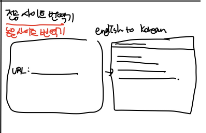 전용 사이트 번역기
논문 사이트 번역기
english to korean
URL: